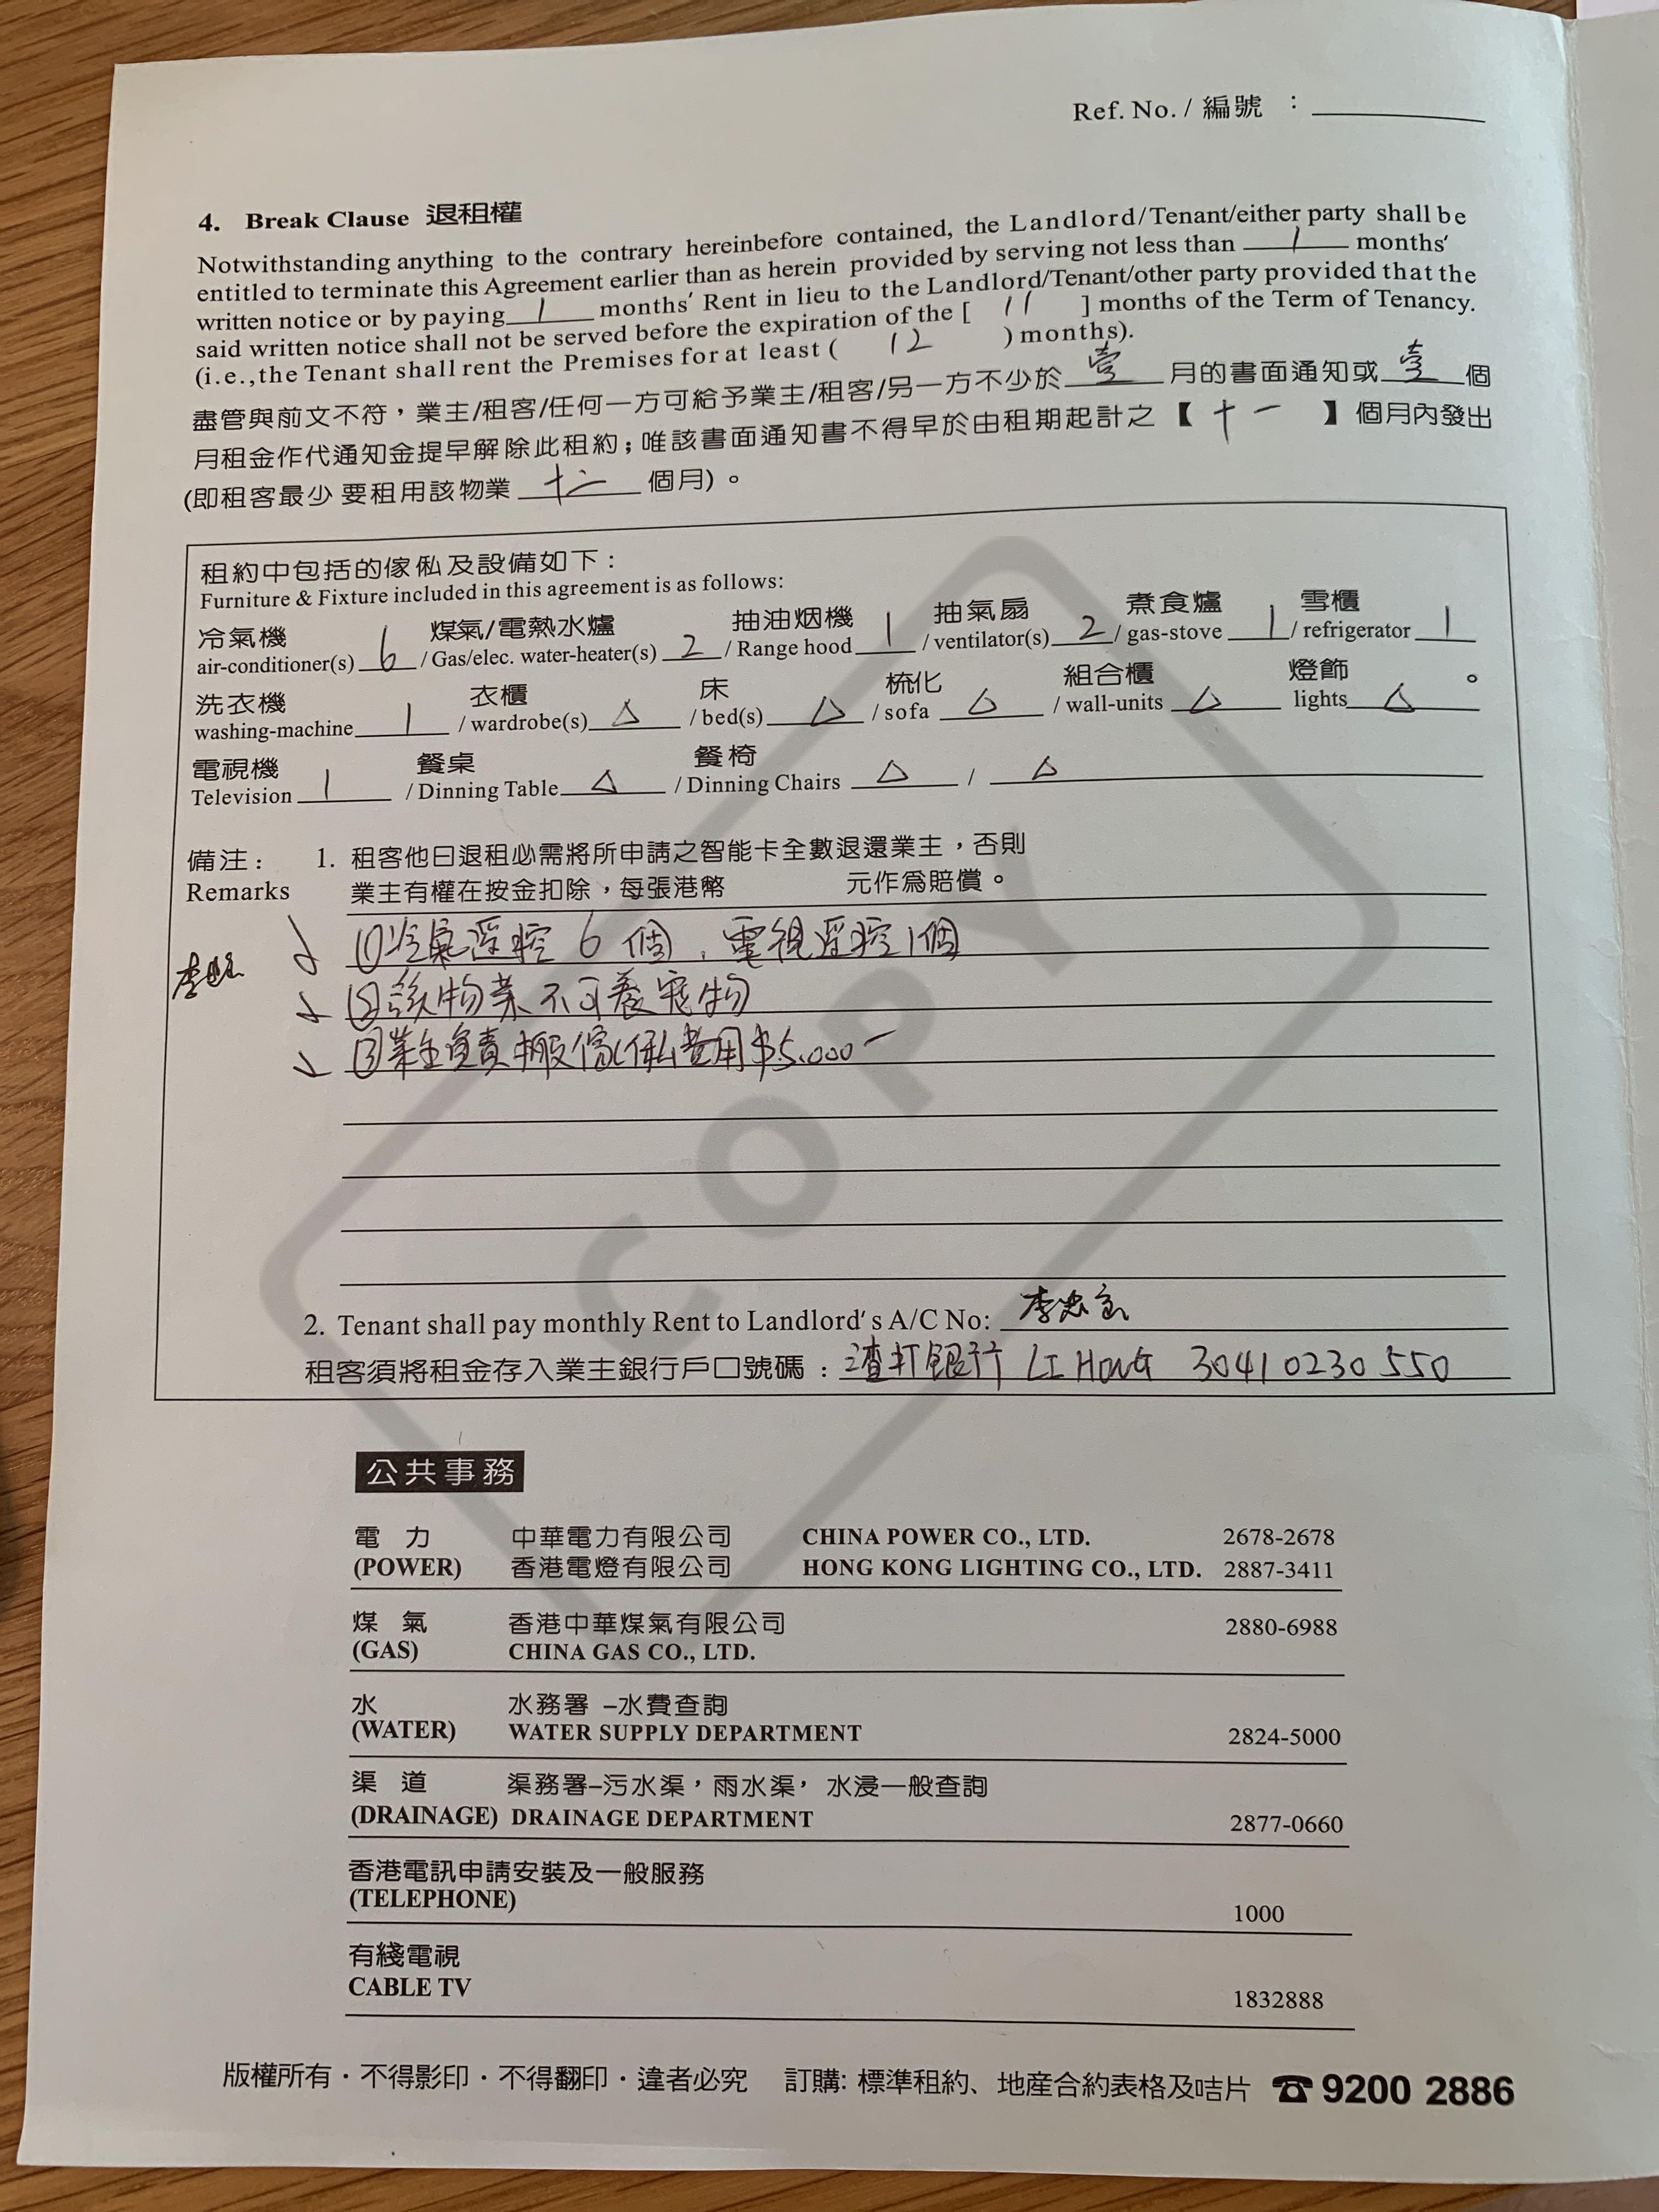 Ref. No. / 編號 : ________
4. Break Clause 退租權
Notwithstanding anything to the contrary hereinbefore contained, the Landlord/Tenant/either party shall be
entitled to terminate this Agreement earlier than as herein provided by serving not less than 1 months'
written notice or by paying 1 months' Rent in lieu to the Landlord/Tenant/other party provided that the
said written notice shall not be served before the expiration of the [ 11 ] months of the Term of Tenancy.
(i.e.,the Tenant shall rent the Premises for at least ( 12 ) months).
盡管與前文不符，業主/租客/任何一方可給予業主/租客/另一方不少於 壹 月的書面通知或 壹 個
月租金作代通知金提早解除此租約；唯該書面通知書不得早於由租期起計之【 十一 】個月內發出
(即租客最少要租用該物業 十二 個月)。
租約中包括的傢俬及設備如下：
Furniture & Fixture included in this agreement is as follows:
冷氣機 煤氣/電熱水爐 抽油烟機 抽氣扇 煮食爐 雪櫃
air-conditioner(s) 6 / Gas/elec. water-heater(s) 2 / Range hood 1 / ventilator(s) 2 / gas-stove 1 / refrigerator 1
洗衣機 衣櫃 床 梳化 組合櫃 燈飾 。
washing-machine 1 / wardrobe(s) △ / bed(s) △ / sofa △ / wall-units △ lights △
電視機 餐桌 餐椅
Television 1 / Dinning Table △ / Dinning Chairs △ / △
備注： 1. 租客他日退租必需將所申請之智能卡全數退還業主，否則
Remarks 業主有權在按金扣除，每張港幣 元作爲賠償。
①冷氣遥控 6 個，電視遥控1個
②該物業不可養寵物
③業主負責搬傢俬費用$5,000-
2. Tenant shall pay monthly Rent to Landlord's A/C No:
租客須將租金存入業主銀行戶口號碼：渣打銀行 LI HONG 30410230550
COPY
公共事務
電 力 中華電力有限公司 CHINA POWER CO., LTD. 2678-2678
(POWER) 香港電燈有限公司 HONG KONG LIGHTING CO., LTD. 2887-3411
煤 氣 香港中華煤氣有限公司 2880-6988
(GAS) CHINA GAS CO., LTD.
水 水務署 –水費查詢
(WATER) WATER SUPPLY DEPARTMENT 2824-5000
渠 道 渠務署–污水渠，雨水渠，水浸一般查詢
(DRAINAGE) DRAINAGE DEPARTMENT 2877-0660
香港電訊申請安裝及一般服務
(TELEPHONE) 1000
有綫電視
CABLE TV 1832888
版權所有·不得影印·不得翻印·違者必究 訂購: 標準租約、地産合約表格及咭片 ☎ 9200 2886